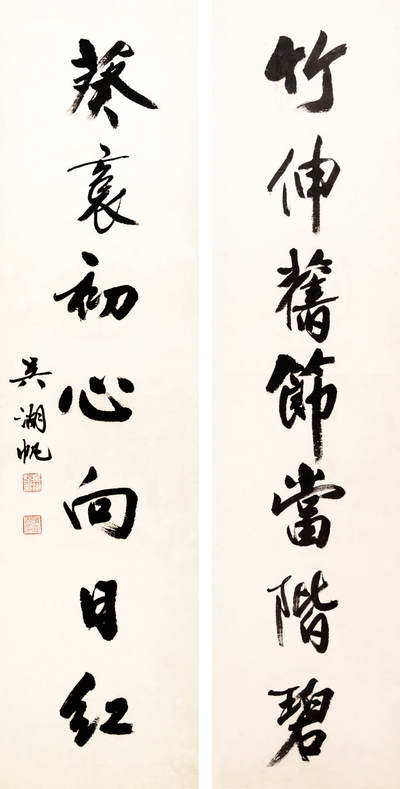 竹伸舊節當階碧
葵裹初心向日紅
吳湖帆